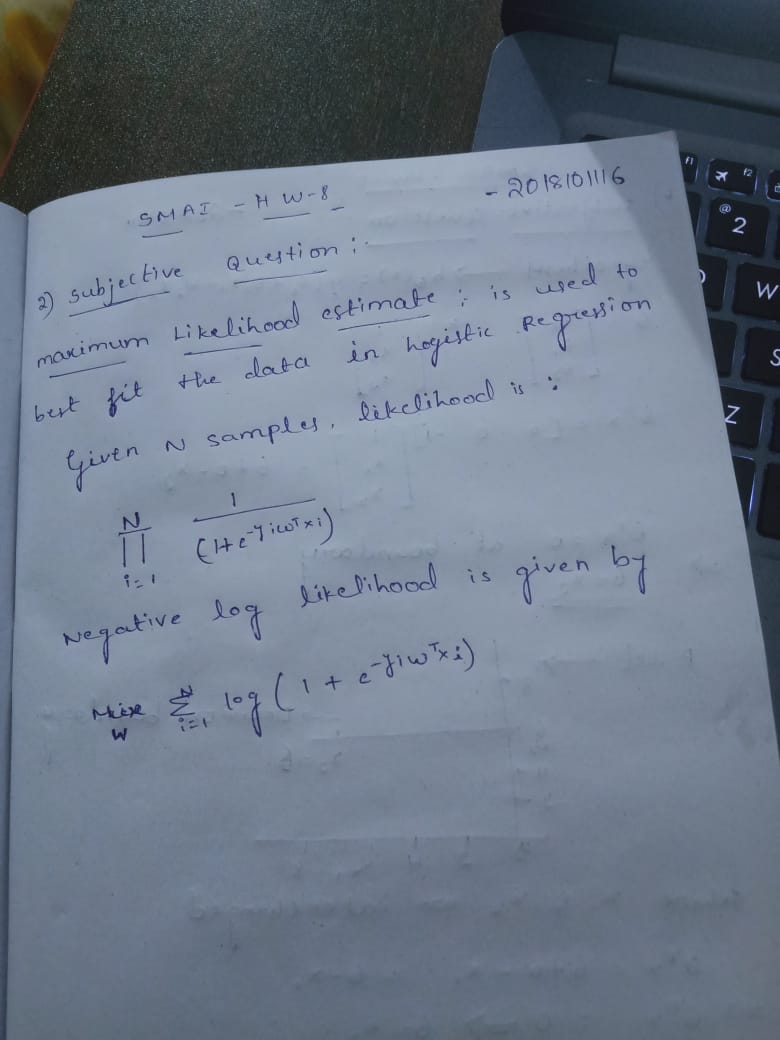 SMAI - HW-8
- 2018101116
2) Subjective Question :-
maximum Likelihood estimate : is used to
best fit the data in Logistic Regression
Given N samples, likelihood is :
N
∏ 1 / (1+e^-yiωᵀxi)
i=1
Negative log likelihood is given by
Σ_{i=1}^{N} log(1 + e^-yiwᵀxi)
W
f1
f2
@
2
W
S
Z